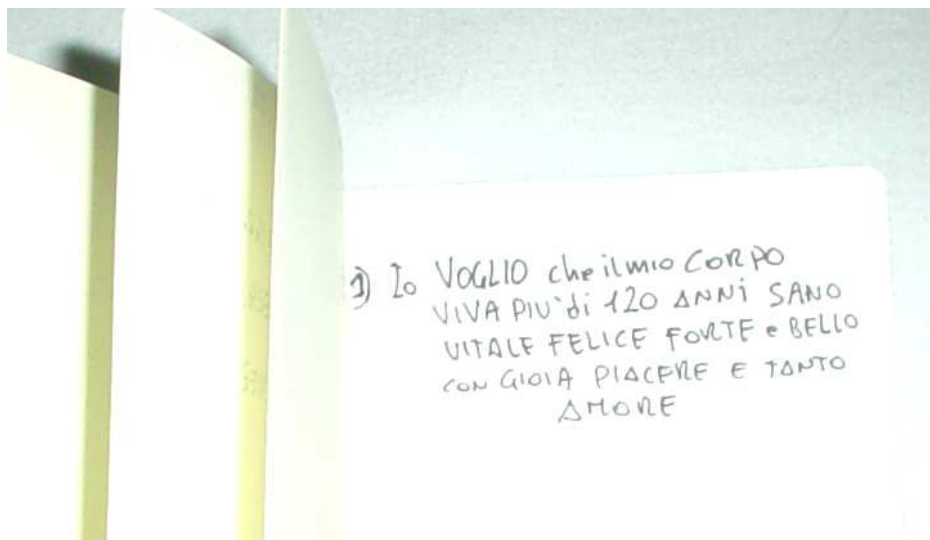 1) Io VOGLIO che il mio CORPO
VIVA PIU' di 120 ANNi SANO
VITALE FELICE FORTE e BELLO
CON GIOIA PIACERE E TANTO
AMORE